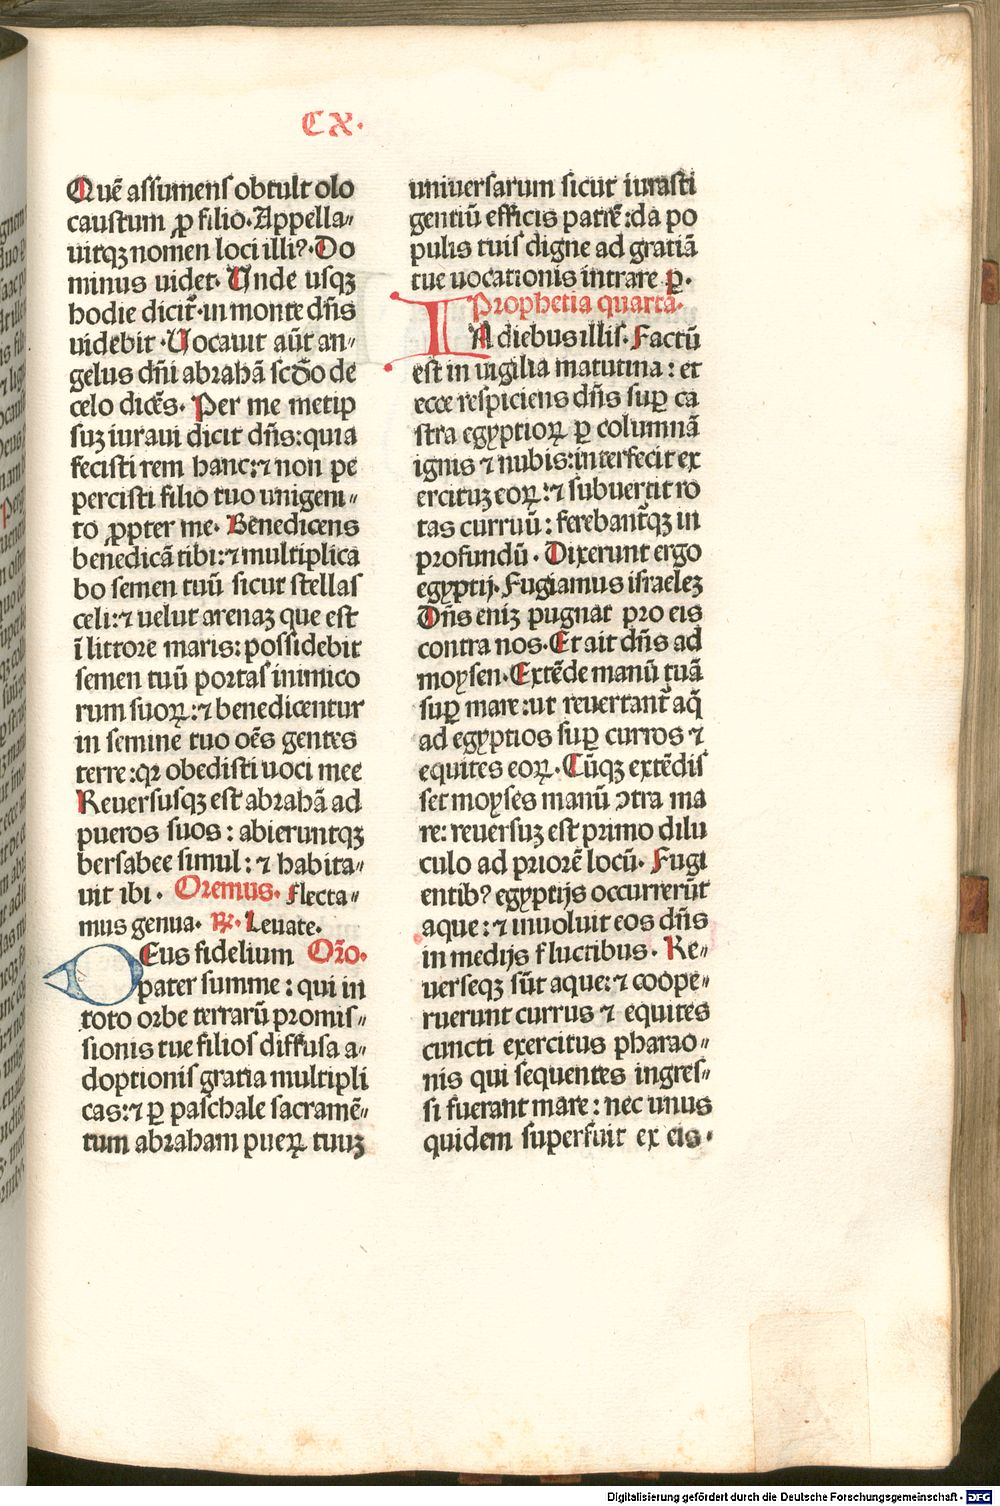 CX.
Quē assumens obtulit olo
caustum ꝓ filio. Appella〃
uitqꝫ nomen loci illiꝰ. Do
minus uidet. Unde usqꝫ
hodie dicit᷑. in monte dn̄s
uidebit. Uocauit aūt an〃
gelus dn̄i abrahā scd̄o de
celo dicēs. Per me metip
suꝫ iuraui dicit dn̄s: quia
fecisti rem hanc: ⁊ non pe
percisti filio tuo unigeni〃
to ꝓpter me. Benedicens
benedicā tibi: ⁊ multiplica
bo semen tuū sicut stellas
celi: ⁊ uelut arenaꝫ que est
ī littore maris: possidebit
semen tuū portas inimico
rum suoꝝ: ⁊ benedicentur
in semine tuo oēs gentes
terre: qꝛ obedisti uoci mee
Reuersusqꝫ est abrahā ad
pueros suos: abieruntqꝫ
bersabee simul: ⁊ habita〃
uit ibi. Oremus. Flecta〃
mus genua. ℟. Leuate.
DEus fidelium Oꝛ̄o.
pater summe: qui in
toto orbe terrarū promis〃
sionis tue filios diffusa a〃
doptionis gratia multipli
cas: ⁊ ꝑ paschale sacramē〃
tum abraham pueꝝ tuuꝫ
uniuersarum sicut iurasti
gentiū efficis patrē: da po
pulis tuis digne ad gratiā
tue uocationis intrare. ꝑ.
Prophetia quarta.
IN diebus illis. Factū
est in uigilia matutina: et
ecce respiciens dn̄s suꝑ ca
stra egyptioꝝ ꝑ columnā
ignis ⁊ nubis: interfecit ex
ercituꝫ eoꝝ: ⁊ subuertit ro
tas curruū: ferebant᷑qꝫ in
profundū. Dixerunt ergo
egyptij. Fugiamus israeleꝫ
Dn̄s eniꝫ pugnat pro eis
contra nos. Et ait dn̄s ad
moysen. Extēde manū tuā
suꝑ mare: ut reuertant᷑ aq̄
ad egyptios suꝑ curros ⁊
equites eoꝝ. Cūqꝫ extēdis
set moyses manū ↄtra ma
re: reuersuꝫ est primo dilu
culo ad priorē locū. Fugi
entibꝰ egyptijs occurrerūt
aque: ⁊ inuoluit eos dn̄s
in medijs fluctibus. Re〃
uerseqꝫ sūt aque: ⁊ coope〃
ruerunt currus ⁊ equites
cuncti exercitus pharao〃
nis qui sequentes ingres〃
si fuerant mare: nec unus
quidem superfuit ex eis.
Digitalisierung gefördert durch die Deutsche Forschungsgemeinschaft - DFG